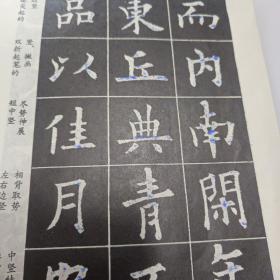 而內南閑
東丘典青
品以佳月
双折起笔的
竖、撇画
短中竖
尽势伸展
左右边竖
相背取势
中竖